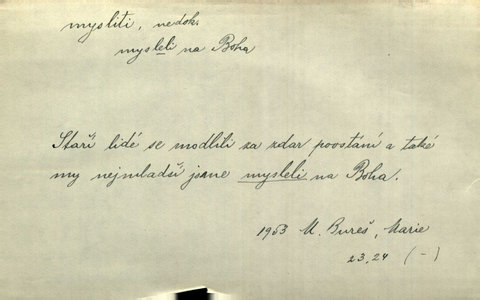 mysliti, nedok.
mysleli na Boha
Staří lidé se modlili za zdar povstání a také
my nejmladší jsme mysleli na Boha.
1953 M. Bureš, Marie
23, 24 (-)